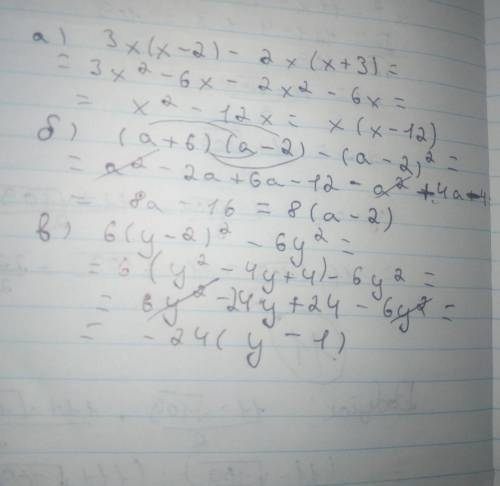 а) 3x(x-2) - 2x(x+3) =
= 3x² - 6x - 2x² - 6x =
= x² - 12x = x(x-12)
б) (a+6)(a-2) - (a-2)² =
= a² - 2a + 6a - 12 - a² + 4a - 4
= 8a - 16 = 8(a-2)
в) 6(y-2)² - 6y² =
= 6(y² - 4y + 4) - 6y² =
= 6y² - 24y + 24 - 6y² =
= -24(y-1)